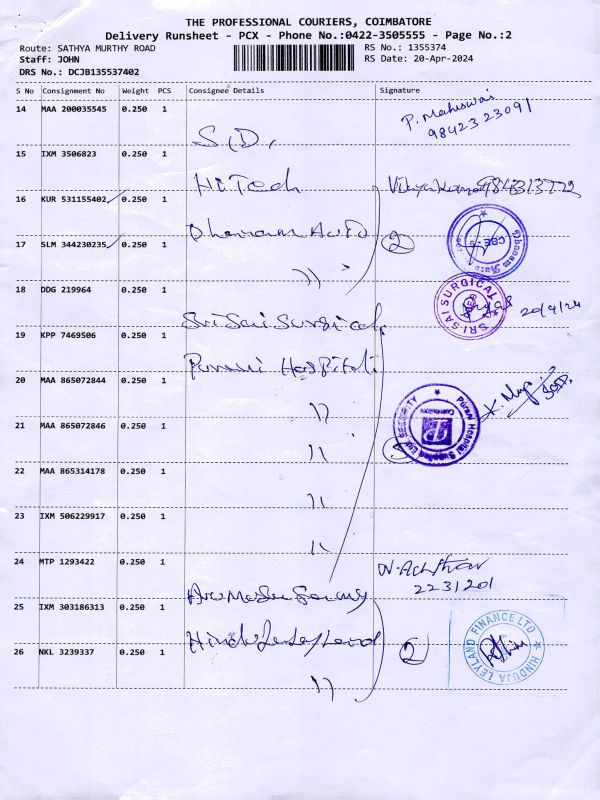 THE PROFESSIONAL COURIERS, COIMBATORE
Delivery Runsheet - PCX - Phone No.:0422-3505555 - Page No.:2
Route: SATHYA MURTHY ROAD RS No.: 1355374
Staff: JOHN RS Date: 20-Apr-2024
DRS No.: DCJB135537402
S No Consignment No Weight PCS Consignee Details Signature
14 MAA 200035545 0.250 1 S.D. P. Maheswari
9842323091
15 IXM 3506823 0.250 1 Hi Tech
16 KUR 531155402 0.250 1 Dhanam Auto 2
17 SLM 344230235 0.250 1 ))
18 DDG 219964 0.250 1 Sri Sai Surgical SRI SAI SURGICAL 20/4/24
19 KPP 7469506 0.250 1 Purani Hospital
20 MAA 865072844 0.250 1 ))
21 MAA 865072846 0.250 1 )) SECURITY
22 MAA 865314178 0.250 1 ))
23 IXM 506229917 0.250 1 ))
24 MTP 1293422 0.250 1
2231201
25 IXM 303186313 0.250 1 Hinduja Leyland 2 HINDUJA LEYLAND FINANCE LTD
26 NKL 3239337 0.250 1 ))